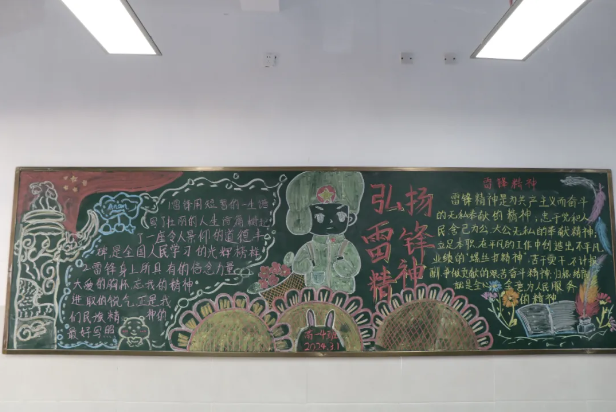 1雷锋用短暂的一生谱
写了壮丽的人生诗篇树起
了一座令人景仰的道德丰
碑是全国人民学习的光辉榜样
2雷锋身上所具有的信念力量
大爱的胸怀忘我的精神
进取的锐气正是我
们民族精神的
最好写照
弘扬
雷锋
精神
雷锋精神
雷锋精神是为共产主义而奋斗
的无私奉献的精神,忠于党和人
民舍己为公、大公无私的奉献精神
立足本职、在平凡的工作中创造出不平凡
业绩的"螺丝钉精神"苦干实干、不计报
酬、争做贡献的艰苦奋斗精神,归根结底
就是全心全意为人民服务
的精神
2024.3.1